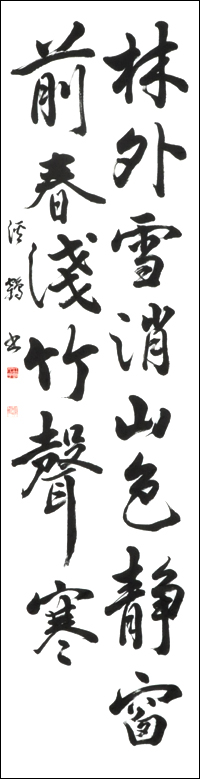 林外雪消山色静窗
前春淺竹聲寒
溪鶴書